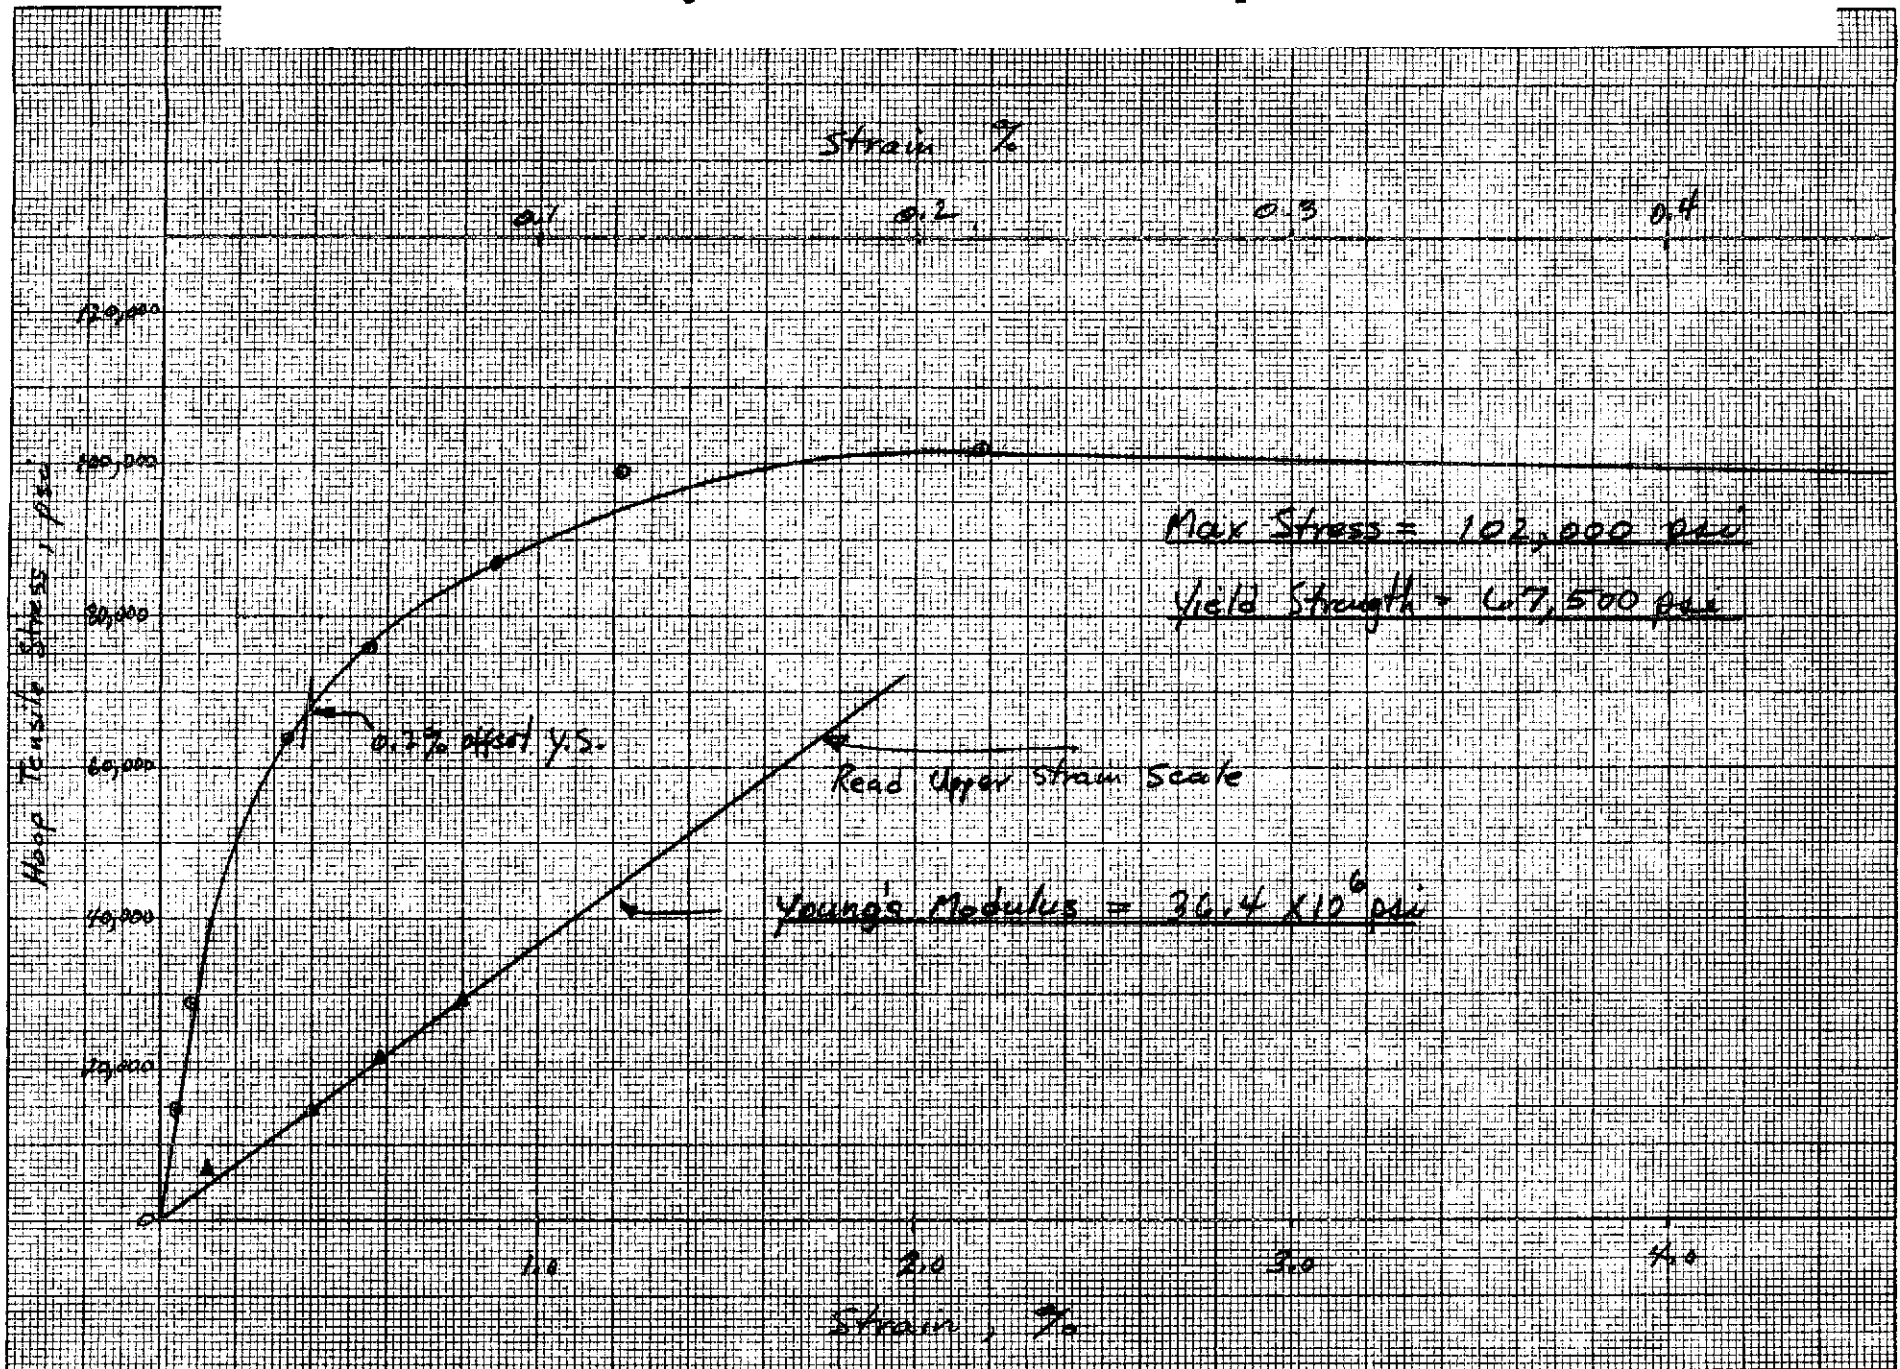 Strain %
0.1 0.2 0.3 0.4
120,000
100,000
80,000
60,000
40,000
20,000
0
Hoop Tensile Stress, psi
Max Stress = 102,000 psi
Yield Strength = 67,500 psi
0.2% offset Y.S.
Read Upper Strain Scale
Young's Modulus = 36.4 X10⁶ psi
1.0 2.0 3.0 4.0
Strain, %